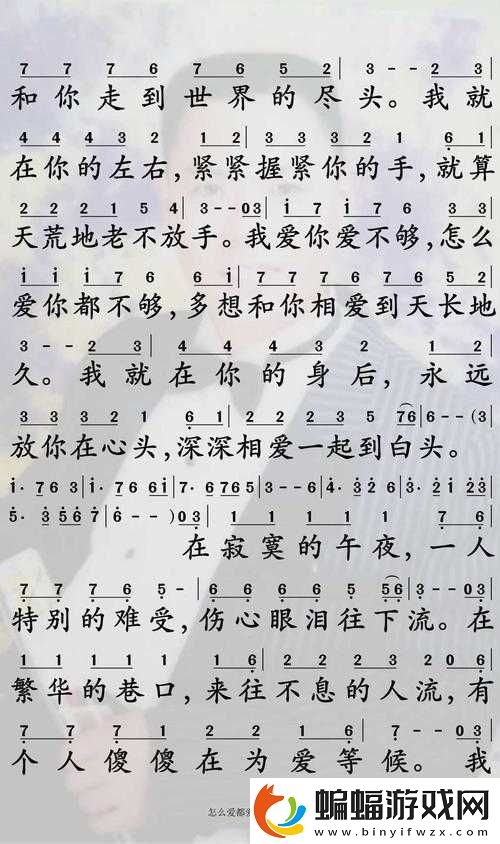 7 7 7 6 7 6 5 2 | 3 - - 2 3 |
和你走到世界的尽头。我就
4 4 4 3 2 1 2 | 3 3 3 2 1 6 1 |
在你的左右,紧紧握紧你的手,就算
2 2 2 1 5 4 | 3 - - 0 3 | i 7 i 7 6 3 3 |
天荒地老不放手。我爱你爱不够,怎么
i i i 7 6 6 i | 7 7 7 6 7 6 5 2 |
爱你都不够,多想和你相爱到天长地
3 - - 2 3 | 4 4 4 3 2 1 2 |
久。我就在你的身后,永远
3 3 3 2 1 6 1 | 2 2 2 3 5 7 6 | 6 - - (3 |
放你在心头,深深相爱一起到白头。
i· 7 6 3 | i· 7 6 7 6 i | 7· 6 7 6 5 | 3 - - 6 | 4· 3 2 6 | 3· 2 1 2 3 |
5· 3 5 6 7 | 6 - - ) 0 3 | 1 1 1 1 1 7 6 |
在寂寞的午夜,一人
7 7 7 6 5 - | 6 6 6 6 5 5 6 | 3 - - 0 3 |
特别的难受,伤心眼泪往下流。在
1 1 1 1 1 1 6 | 2 2 2 3 2 0 6 |
繁华的巷口,来往不息的人流,有
7 7 7 1 2 2 1 6 | 7 - - 0 3 |
个人傻傻在为爱等候。我
怎么爱都爱
蝙蝠游戏网
www.binyifwzx.com